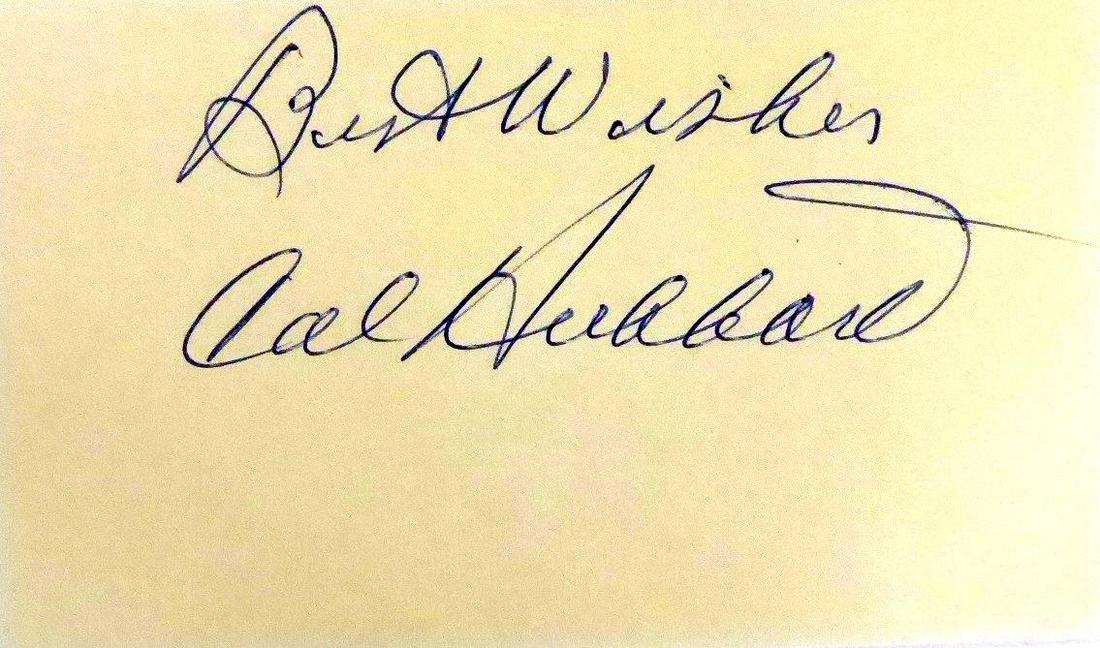 Best Wishes
Cal Hubbard